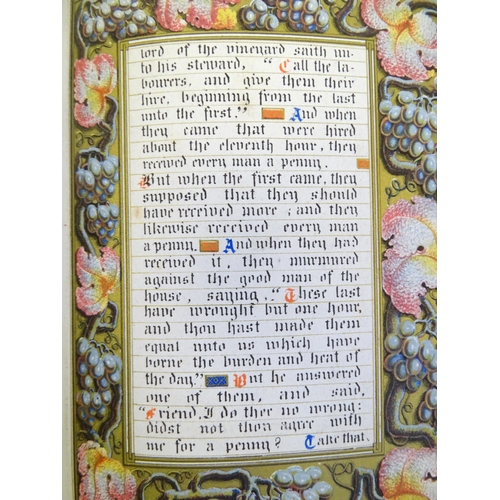 lord of the vineyard saith un-
to his steward, "Call the la-
bourers, and give them their
hire, beginning from the last
unto the first." And when
they came that were hired
about the eleventh hour, they
received every man a penny.
But when the first came, they
supposed that they should
have received more; and they
likewise received every man
a penny. And when they had
received it, they murmured
against the good man of the
house, saying, "These last
have wrought but one hour,
and thou hast made them
equal unto us which have
borne the burden and heat of
the day." But he answered
one of them, and said,
"Friend, I do thee no wrong:
didst not thou agree with
me for a penny? Take that